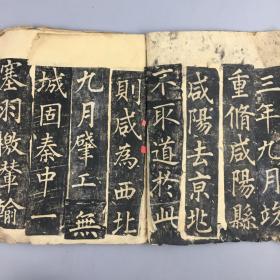 三年九月竣
重脩咸陽縣
咸陽去京兆
不取道於此
則咸為西北
九月肇工無
城固秦中一
塞羽檄輦輸